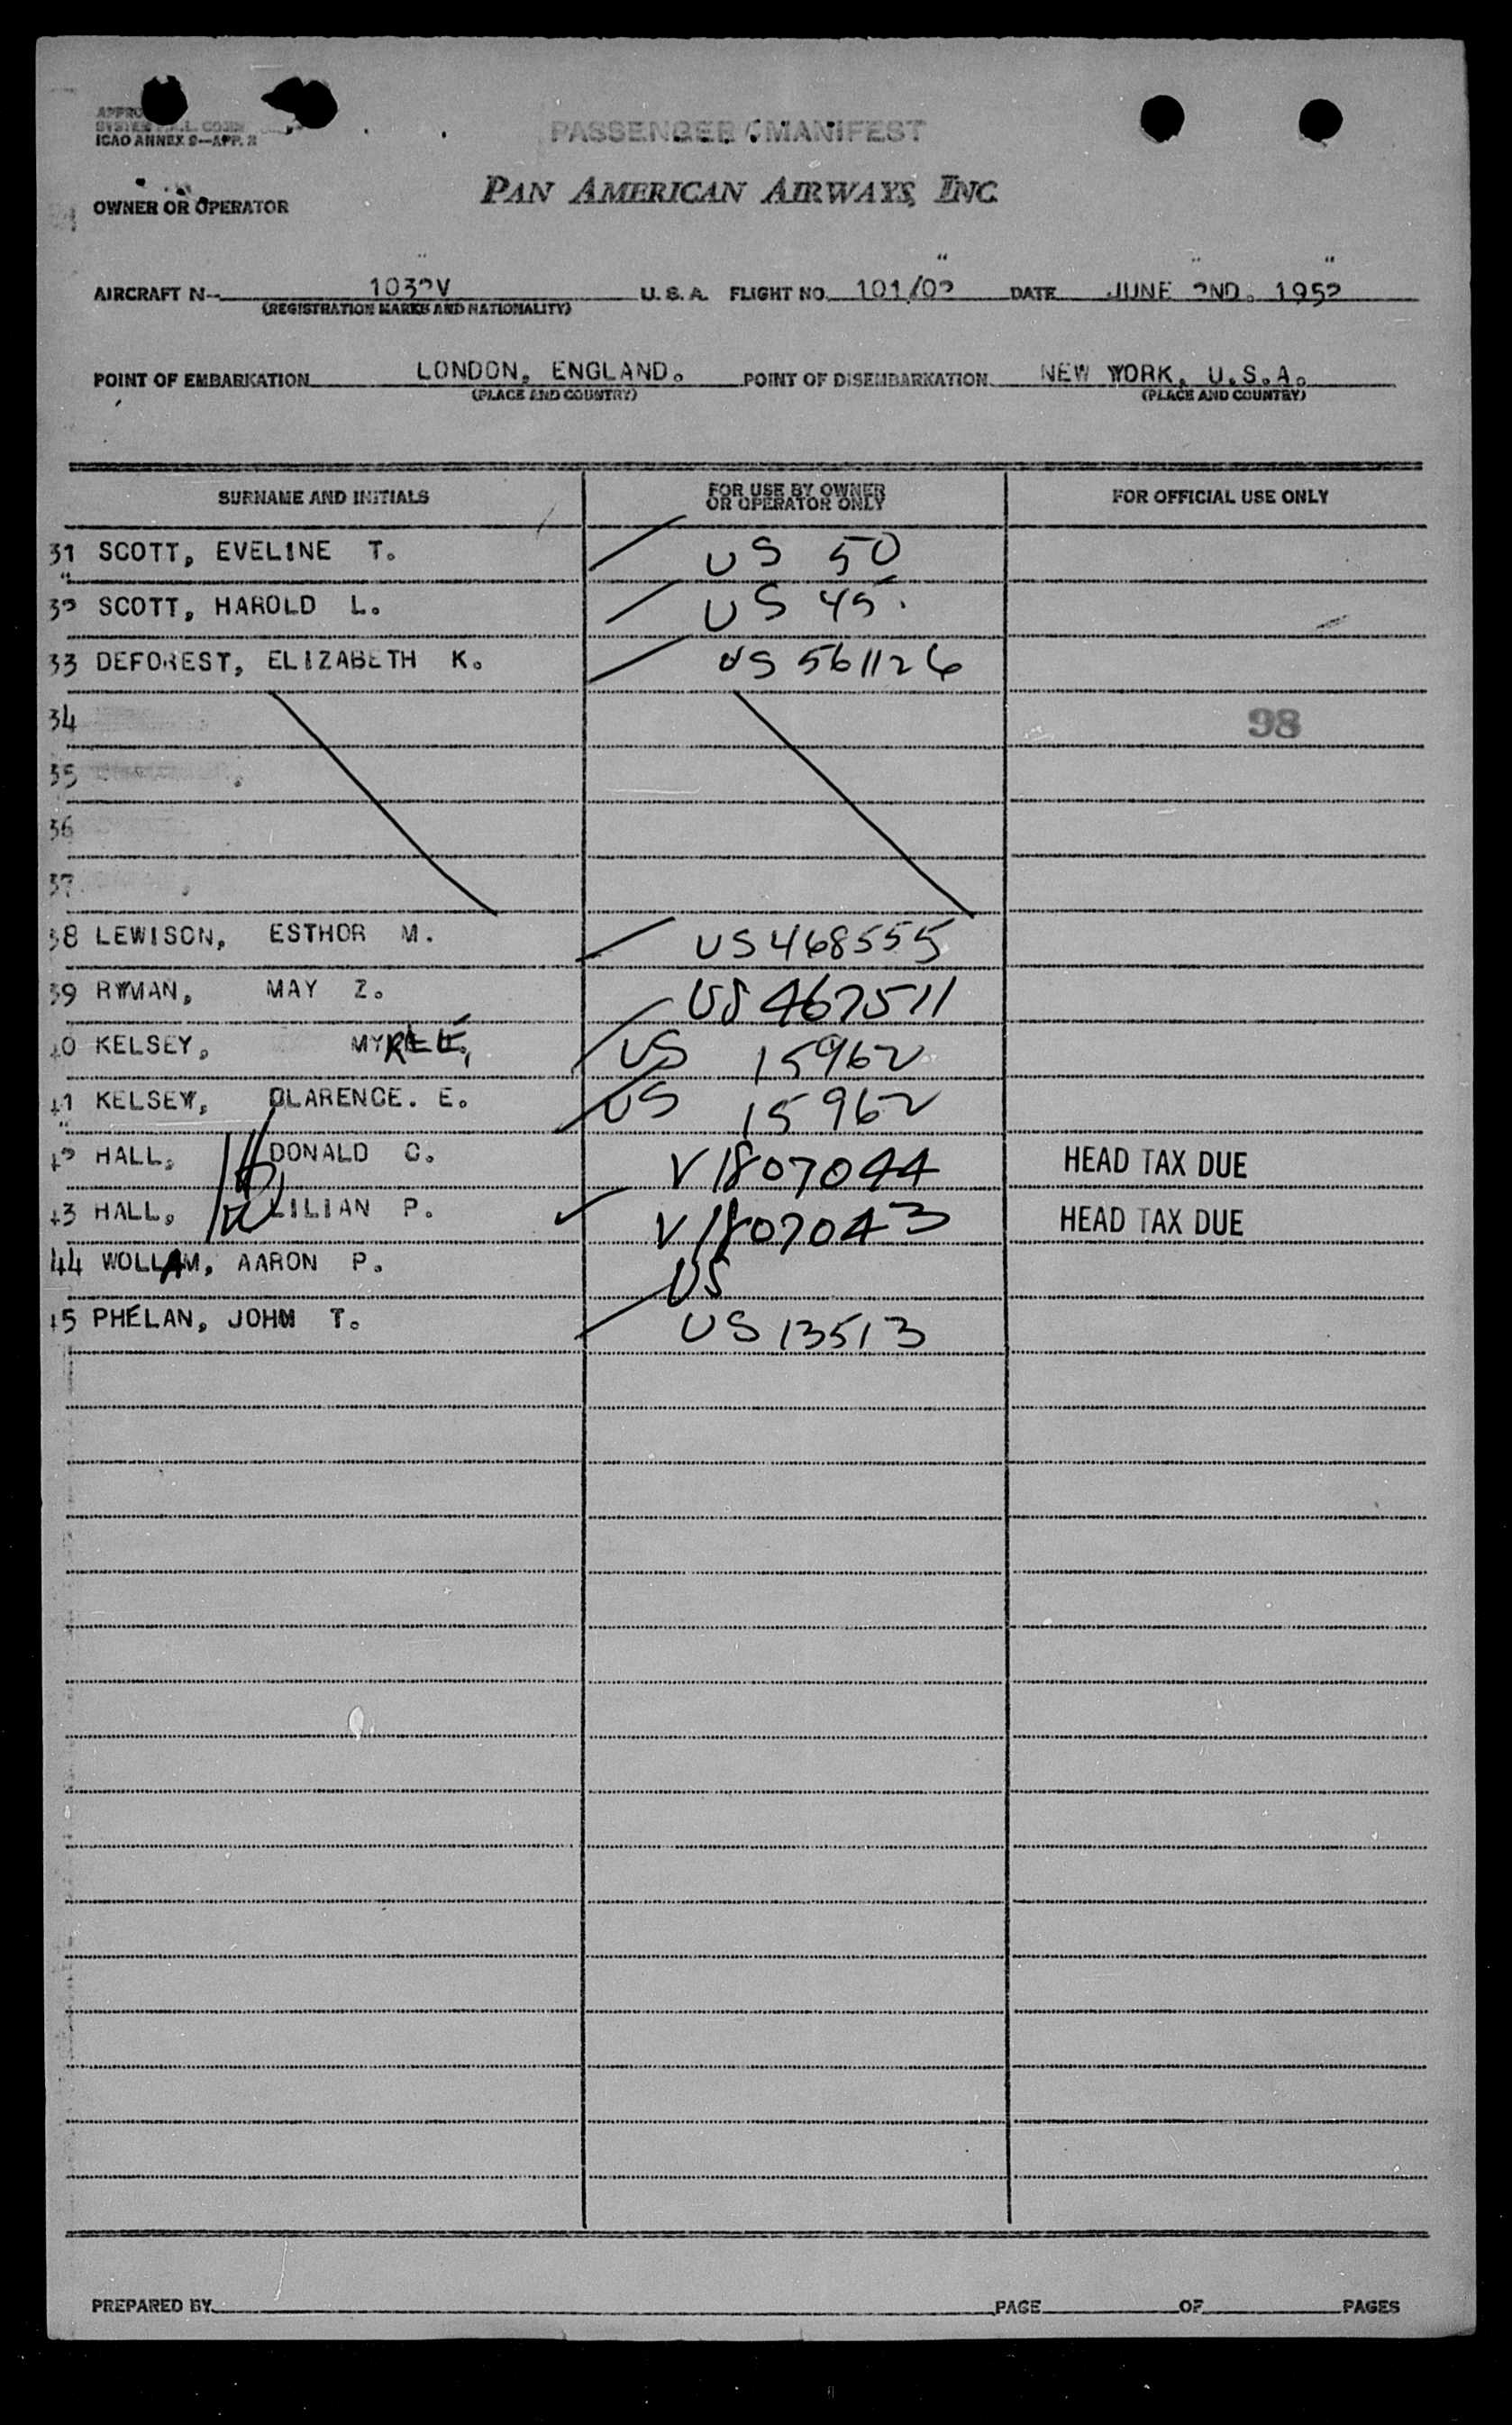 PASSENGER MANIFEST
ICAO ANNEX 9—APP. 2
PAN AMERICAN AIRWAYS, INC.
OWNER OR OPERATOR
AIRCRAFT N- 1032V U. S. A. FLIGHT NO. 101/02 DATE JUNE 2ND. 1952
(REGISTRATION MARKS AND NATIONALITY)
POINT OF EMBARKATION LONDON, ENGLAND. POINT OF DISEMBARKATION NEW YORK, U.S.A.
(PLACE AND COUNTRY) (PLACE AND COUNTRY)
SURNAME AND INITIALS FOR USE BY OWNER OR OPERATOR ONLY FOR OFFICIAL USE ONLY
31 SCOTT, EVELINE T. US 50
32 SCOTT, HAROLD L. US 45.
33 DEFOREST, ELIZABETH K. US 561126
34 98
35
36
37
38 LEWISON, ESTHOR M. US 468555
39 RYMAN, MAY Z. US 467511
40 KELSEY, US 15962
41 KELSEY, CLARENCE. E. US 15962
42 HALL, DONALD C. V1807044 HEAD TAX DUE
43 HALL, LILIAN P. V1807043 HEAD TAX DUE
44 WOLLAM, AARON P. US
45 PHELAN, JOHN T. US 13513
PREPARED BY PAGE OF PAGES